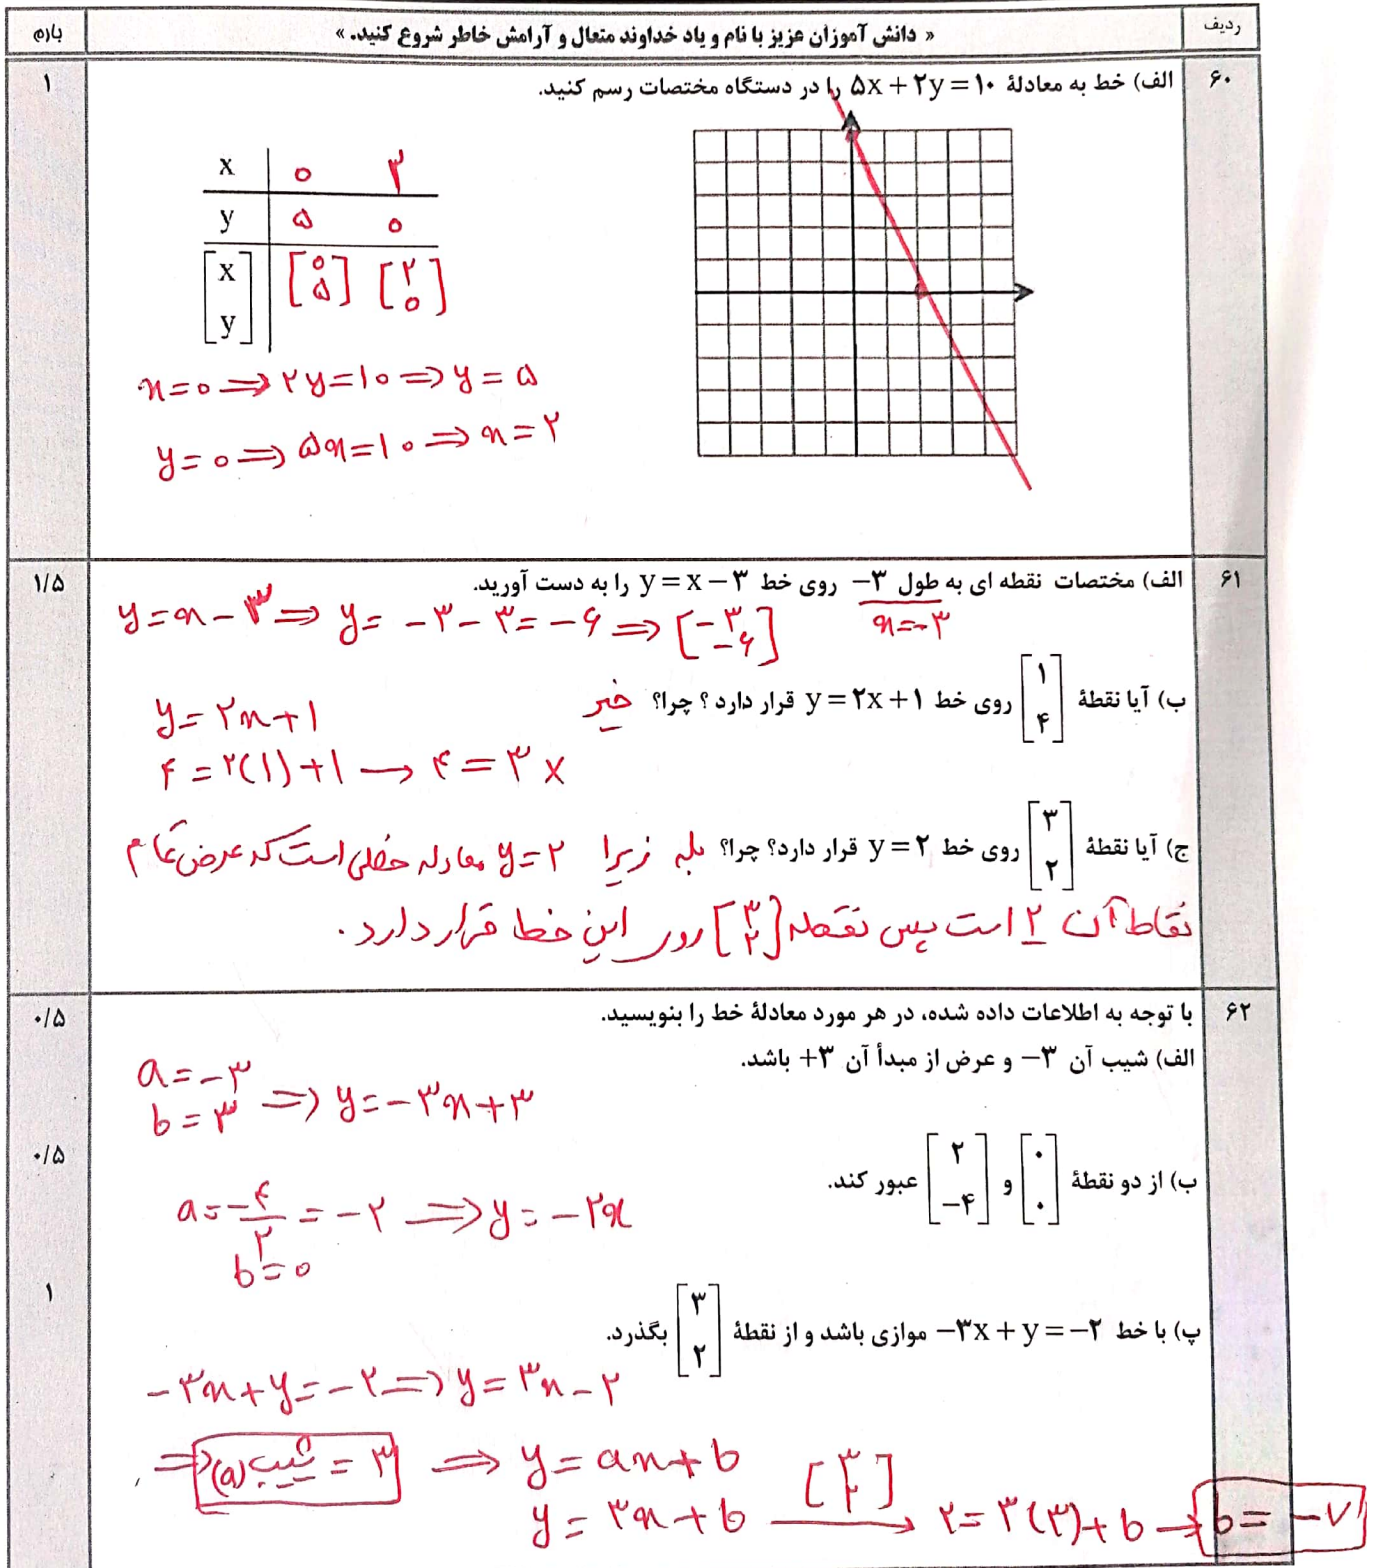 ردیف
« دانش آموزان عزیز با نام و یاد خداوند متعال و آرامش خاطر شروع کنید. »
بارم
۶۰
الف) خط به معادلهٔ ۵x + ۲y = ۱۰ را در دستگاه مختصات رسم کنید.
۱
x | ۰ ۳
y | ۵ ۰
[x y] | [۰ ۵] [۲ ۰]
x=۰ ⇒ ۲y=۱۰ ⇒ y=۵
y=۰ ⇒ ۵x=۱۰ ⇒ x=۲
۶۱
الف) مختصات نقطه ای به طول ۳− روی خط y = x − ۳ را به دست آورید.
۱/۵
x=-۳
y=x-۳ ⇒ y= -۳-۳=-۶ ⇒ [-۳ -۶]
ب) آیا نقطهٔ [۱ ۴] روی خط y = ۲x + ۱ قرار دارد ؟ چرا؟ خیر
y=۲x+۱
۴=۲(۱)+۱ → ۴=۳ x
ج) آیا نقطهٔ [۳ ۲] روی خط y = ۲ قرار دارد؟ چرا؟ بله زیرا y=۲ معادله خطی است که عرض تمام
نقاط آن ۲ است پس نقطه [۳ ۲] روی این خط قرار دارد.
۶۲
با توجه به اطلاعات داده شده، در هر مورد معادلهٔ خط را بنویسید.
۰/۵
الف) شیب آن ۳− و عرض از مبدأ آن ۳+ باشد.
a=-۳
b=۳ ⇒ y=-۳x+۳
۰/۵
ب) از دو نقطهٔ [۰ ۰] و [۲ −۴] عبور کند.
a=-۴/۲=-۲ ⇒ y=-۲x
b=۰
۱
پ) با خط −۳x + y = −۲ موازی باشد و از نقطهٔ [۳ ۲] بگذرد.
-۳x+y=-۲ ⇒ y=۳x-۲
⇒ شیب(a) = ۳ ⇒ y=ax+b
y=۳x+b [۳ ۲] → ۲=۳(۳)+b → b=-۷